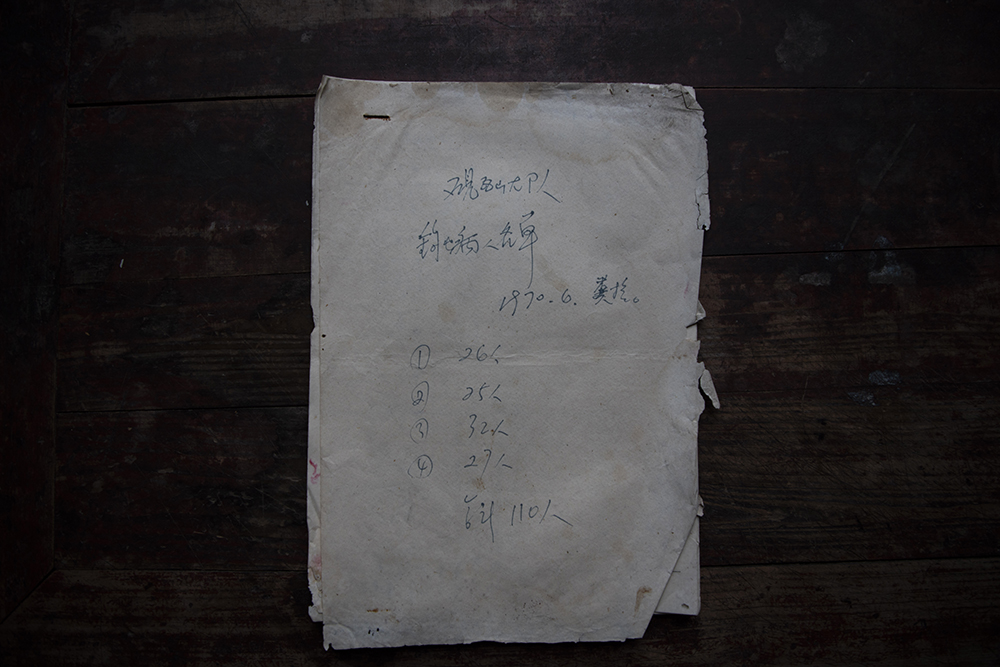 砚瓦山大队
钩虫病人名单
1970.6. 粪检。
① 26人
② 25人
③ 32人
④ 27人
总计 110人